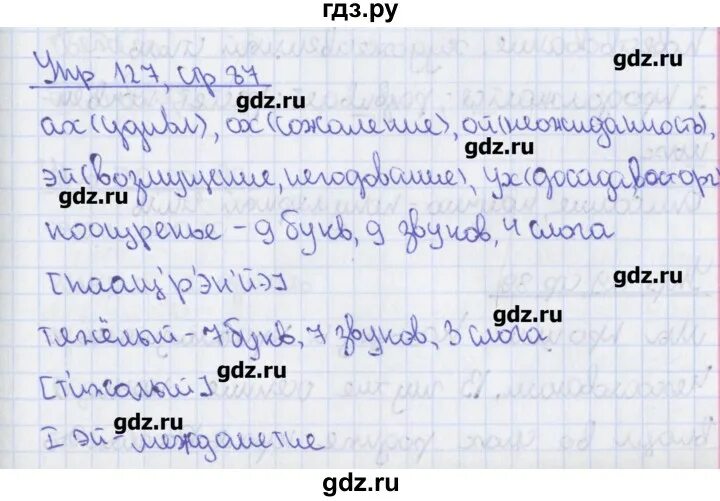 гдз.ру
Упр 127, стр 87
gdz.ru
gdz.ru
ах (удивл), ох (сожаление), ой (неожиданность),
gdz.ru
эй (возмущение, негодование), ух (досада, восторг)
gdz.ru
поощренье - 9 букв, 9 звуков, 4 слога
gdz.ru
[паащ'р'эн'й'э]
gdz.ru
тяжёлый - 7 букв, 7 звуков, 3 слога
gdz.ru
[т'ижолый']
gdz.ru
gdz.ru
I эй - междометие
gdz.ru